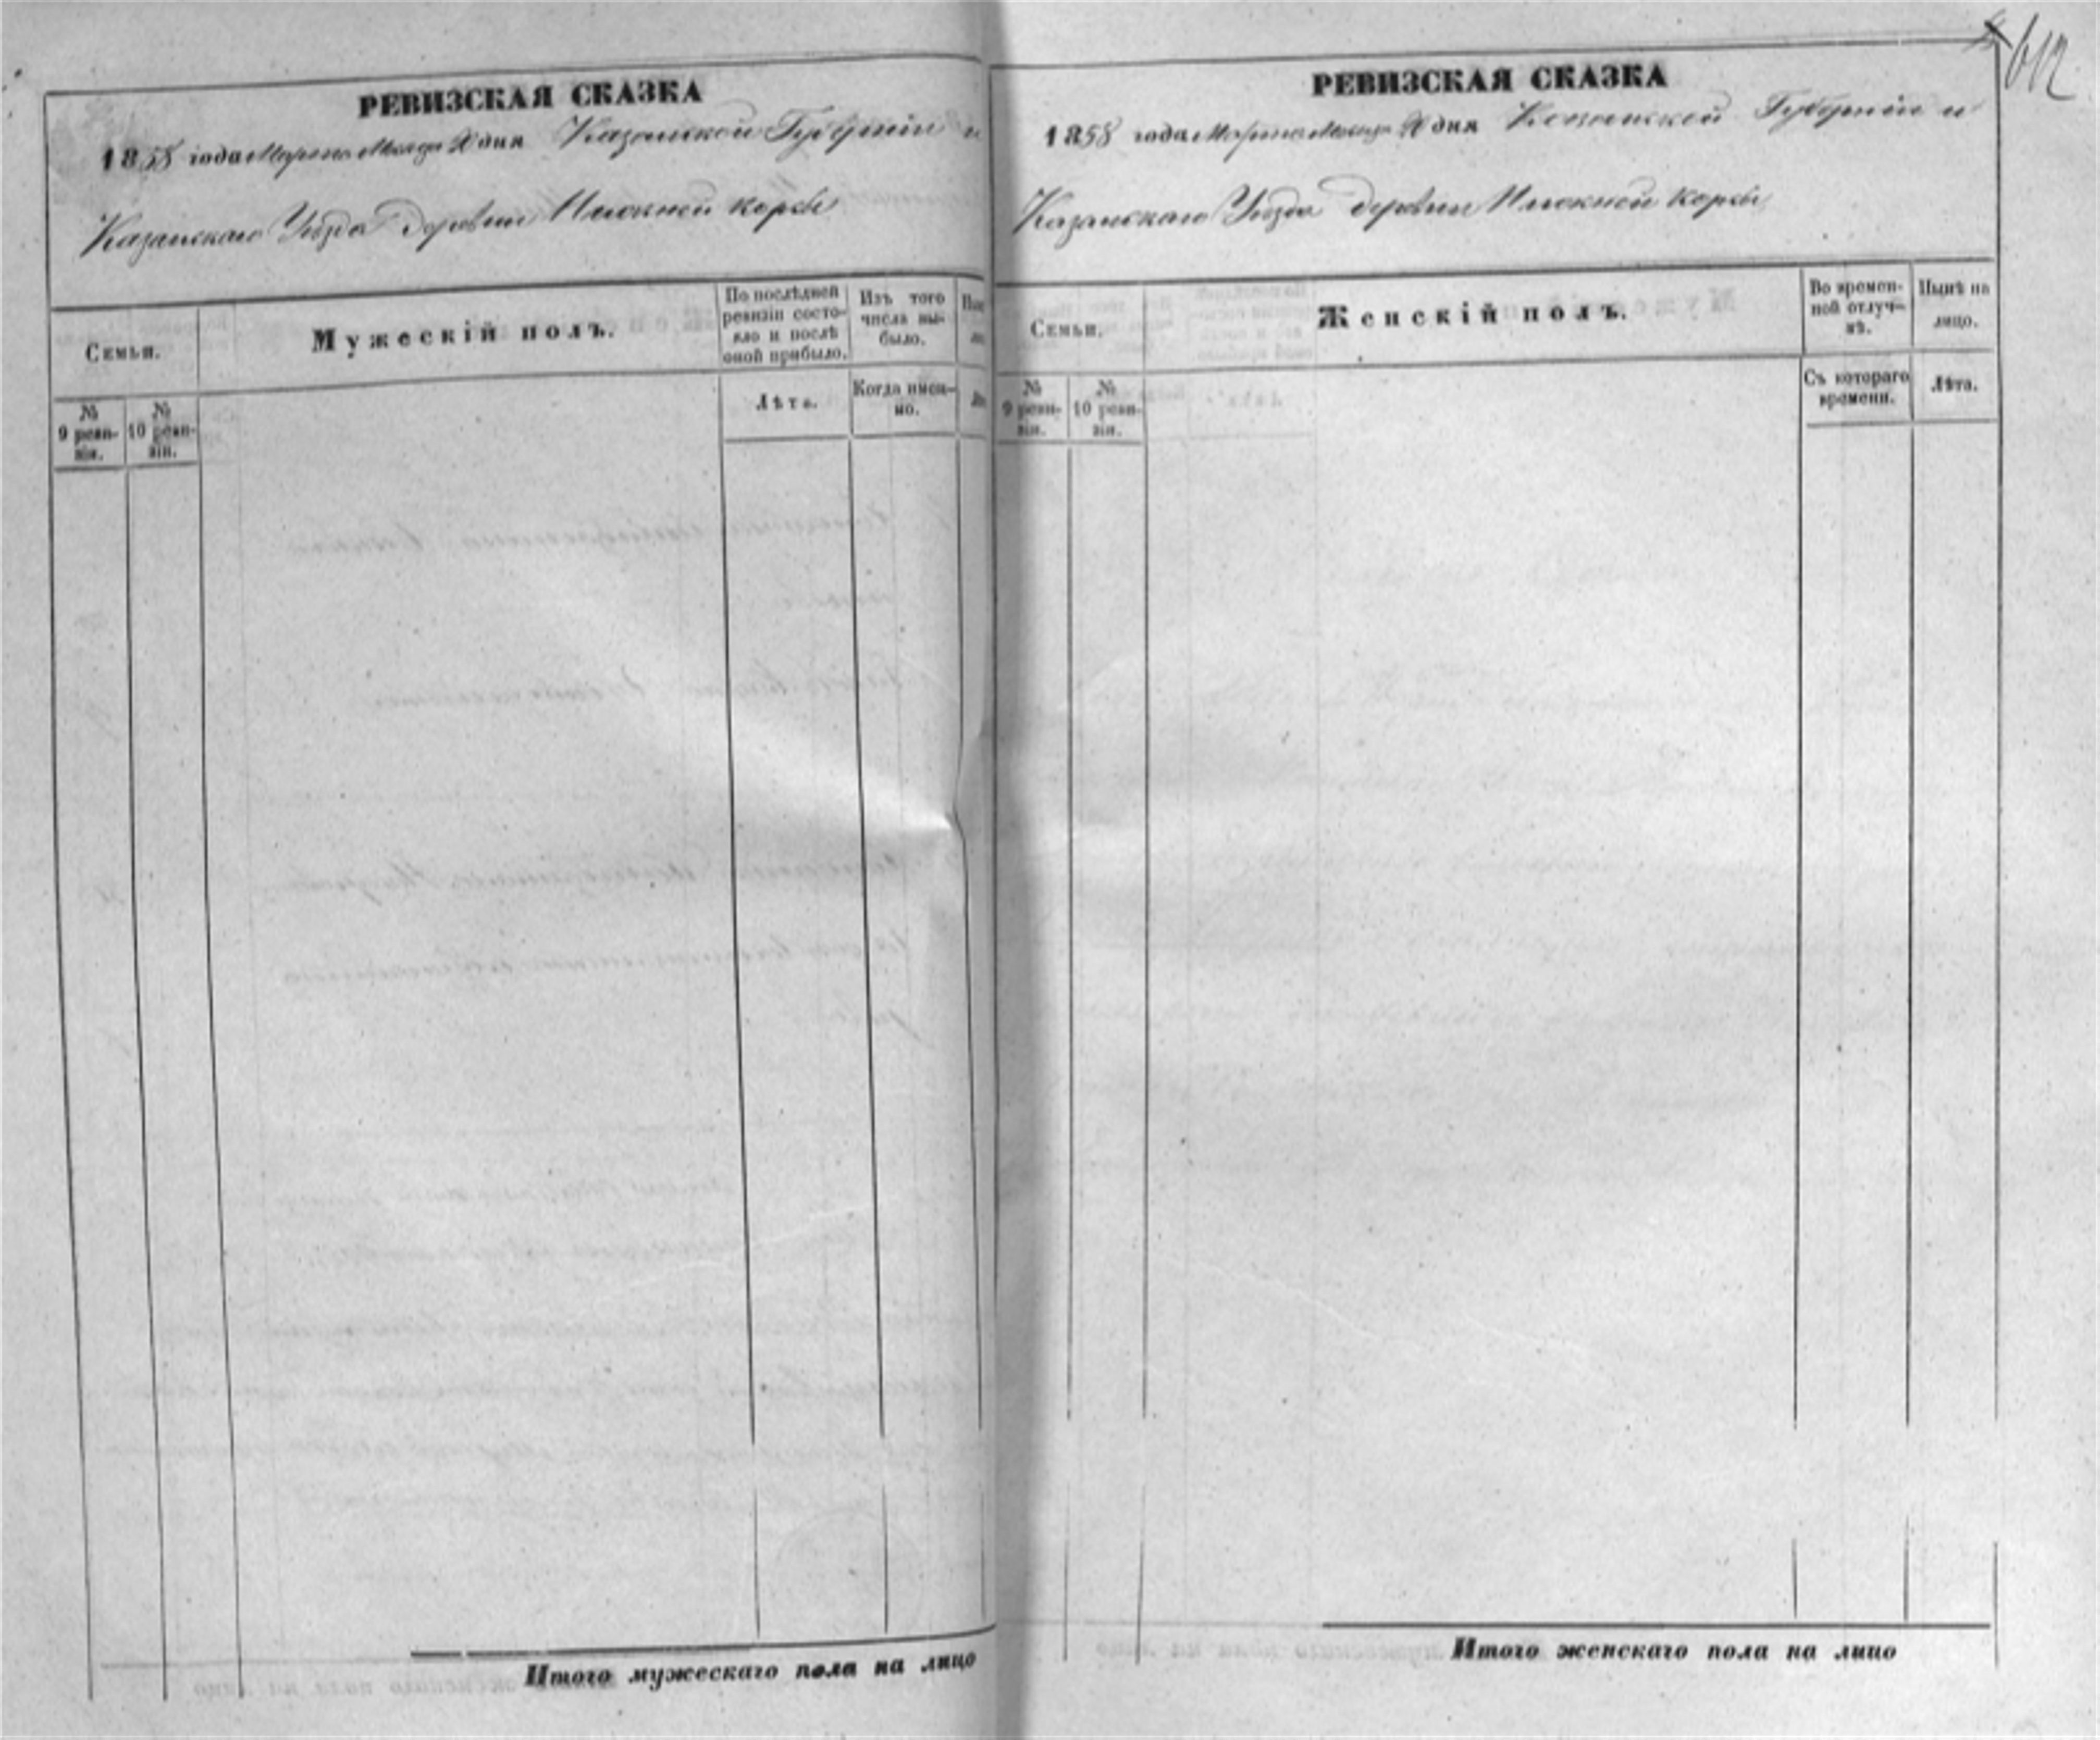 612
РЕВИЗСКАЯ СКАЗКА
1858 года Марта Месяца дня Казанской Губернiи и
Казанскаго Уѣзда деревни Нижней Корсы
Семьи.
Мужескiй полъ.
По послѣдней
ревизiи состо-
яло и послѣ
оной прибыло.
Изъ того
числа вы-
было.
№
9 реви-
зiи.
№
10 реви-
зiи.
Лѣта.
Когда имен-
но.
Итого мужескаго пола на лицо
РЕВИЗСКАЯ СКАЗКА
1858 года Марта Месяца дня Казанской Губернiи и
Казанскаго Уѣзда деревни Нижней Корсы
Семьи.
Женскiй полъ.
Во времен-
ной отлуч-
кѣ.
Нынѣ на
лицо.
№
9 реви-
зiи.
№
10 реви-
зiи.
Съ котораго
времени.
Лѣта.
Итого женскаго пола на лицо